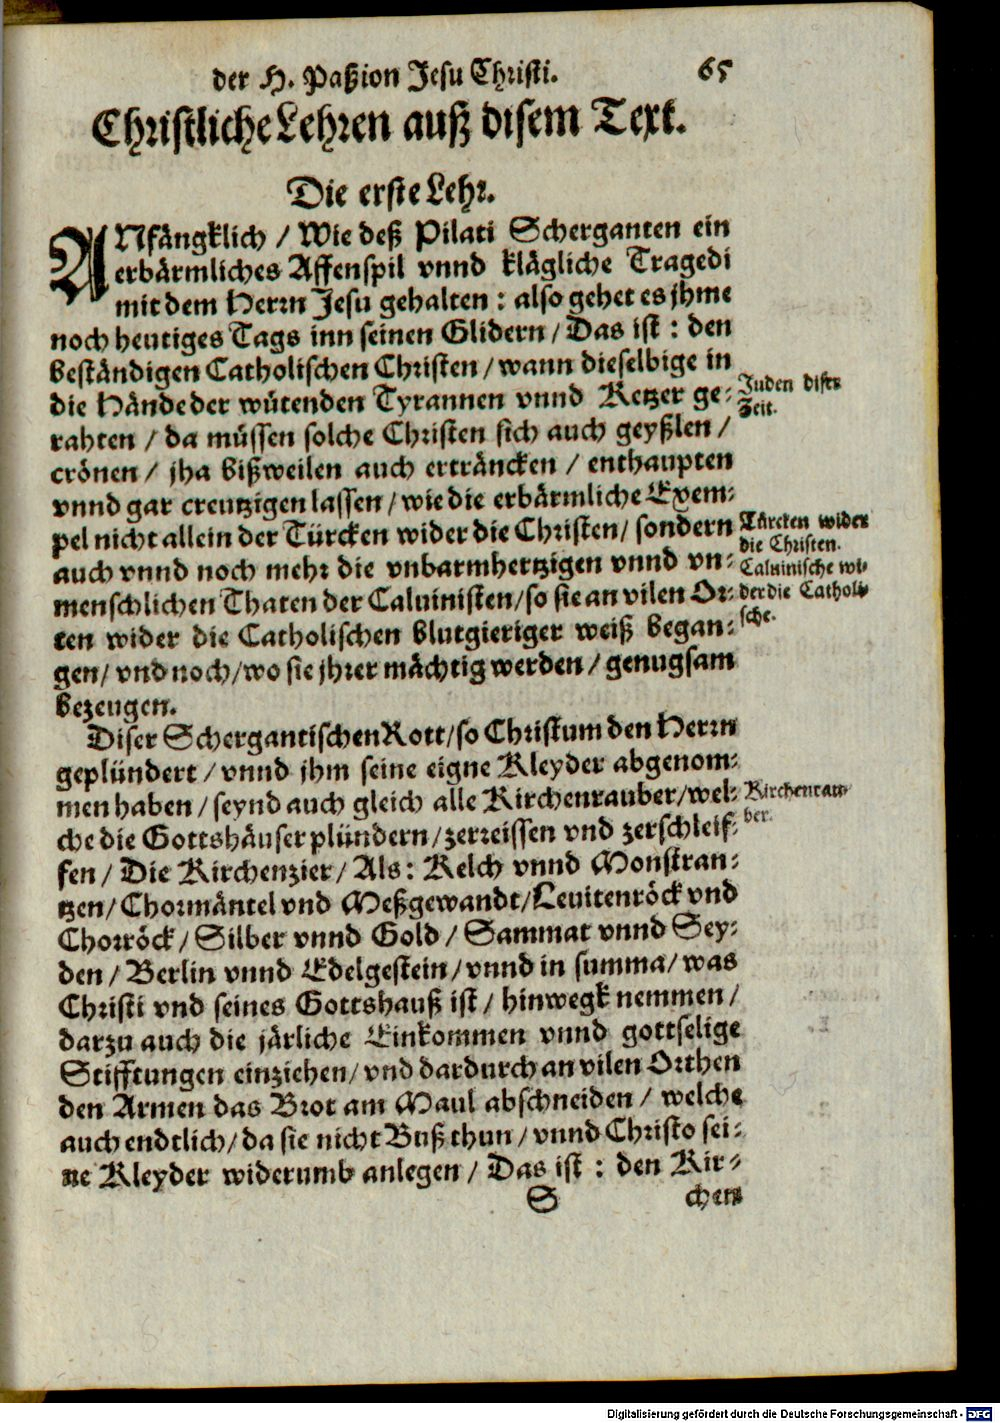 der H. Paßion Jesu Christi. 65
Christliche Lehren auß disem Text.
Die erste Lehr.
ANfängklich / Wie deß Pilati Scherganten ein
erbärmliches Affenspil vnnd klägliche Tragedi
mit dem Herrn Jesu gehalten : also gehet es jhme
noch heutiges Tags inn seinen Glidern / Das ist : den
beständigen Catholischen Christen / wann dieselbige in
die Hände der wütenden Tyrannen vnnd Ketzer ge-
rahten / da müssen solche Christen sich auch geyßlen /
crönen / jha bißweilen auch erträncken / enthaupten
vnnd gar creutzigen lassen / wie die erbärmliche Exem-
pel nicht allein der Türcken wider die Christen / sondern
auch vnnd noch mehr die vnbarmhertzigen vnnd vn-
menschlichen Thaten der Caluinisten / so sie an vilen Or-
ten wider die Catholischen blutgieriger weiß began-
gen / vnd noch / wo sie jhrer mächtig werden / genugsam
bezeugen.
Juden diser
Zeit.
Türcken wider
die Christen.
Caluinische wi-
der die Catholi-
sche.
Diser Schergantischen Rott / so Christum den Herrn
geplündert / vnnd jhm seine eigne Kleyder abgenom-
men haben / seynd auch gleich alle Kirchenrauber / wel-
che die Gottshäuser plündern / zerreissen vnd zerschleif-
fen / Die Kirchenzier / Als : Kelch vnnd Monstran-
tzen / Chormäntel vnd Meßgewandt / Leuitenröck vnd
Chorröck / Silber vnnd Gold / Sammat vnnd Sey-
den / Berlin vnnd Edelgestein / vnnd in summa / was
Christi vnd seines Gottshauß ist / hinwegk nemmen /
darzu auch die järliche Einkommen vnnd gottselige
Stifftungen einziehen / vnd dardurch an vilen Orthen
den Armen das Brot am Maul abschneiden / welche
auch endtlich / da sie nicht Buß thun / vnnd Christo sei-
ne Kleyder widerumb anlegen / Das ist : den Kir-
Kirchenrau-
ber.
S chen
Digitalisierung gefördert durch die Deutsche Forschungsgemeinschaft - DFG